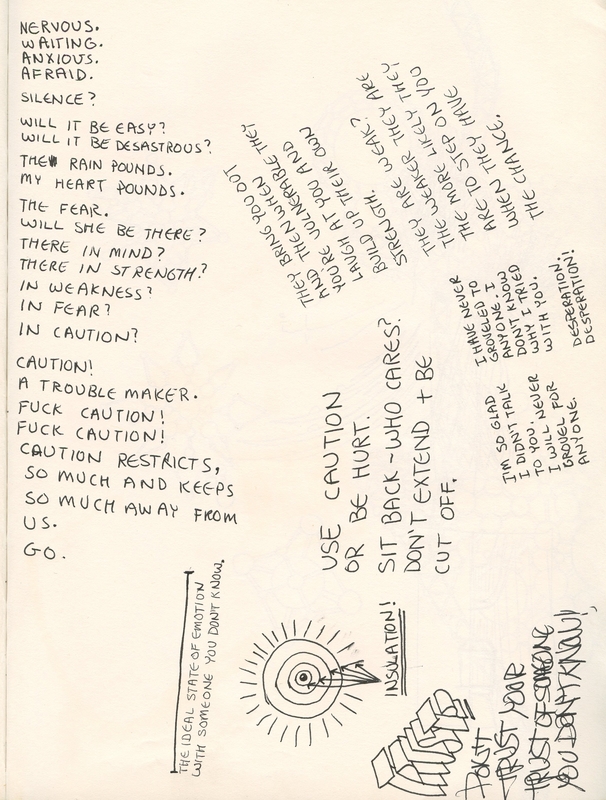 NERVOUS.
WAITING.
ANXIOUS.
AFRAID.
SILENCE?
WILL IT BE EASY?
WILL IT BE DESASTROUS?
THE RAIN POUNDS.
MY HEART POUNDS.
THE FEAR.
WILL SHE BE THERE?
THERE IN MIND?
THERE IN STRENGTH?
IN WEAKNESS?
IN FEAR?
IN CAUTION?
CAUTION!
A TROUBLE MAKER.
FUCK CAUTION!
FUCK CAUTION!
CAUTION RESTRICTS,
SO MUCH AND KEEPS
SO MUCH AWAY FROM
US.
GO.
THEY BRING YOU OUT
AND THEN WHEN THEY
YOU'RE VULNERABLE THEY
LAUGH AT YOU AND
BUILD UP THEIR OWN
STRENGTH.
THEY ARE WEAK?
THE WEAKER THEY ARE
THE MORE LIKELY THEY
ARE TO STEP ON YOU
WHEN THEY HAVE
THE CHANCE.
I HAVE NEVER
GROVELED TO
ANYONE. I
DON'T KNOW
WHY I TRIED
WITH YOU.
DESPERATION!
DESPERATION!
I'M SO GLAD
I DIDN'T TALK
TO YOU. NEVER
I WILL NEVER
GROVEL FOR
ANYONE.
USE CAUTION
OR BE HURT.
SIT BACK ~ WHO CARES?
DON'T EXTEND + BE
CUT OFF.
THE IDEAL STATE OF EMOTION
WITH SOMEONE YOU DON'T KNOW.
INSULATION!
DON'T
TRUST YOUR
TRUST OF SOMEONE
YOU DON'T KNOW!